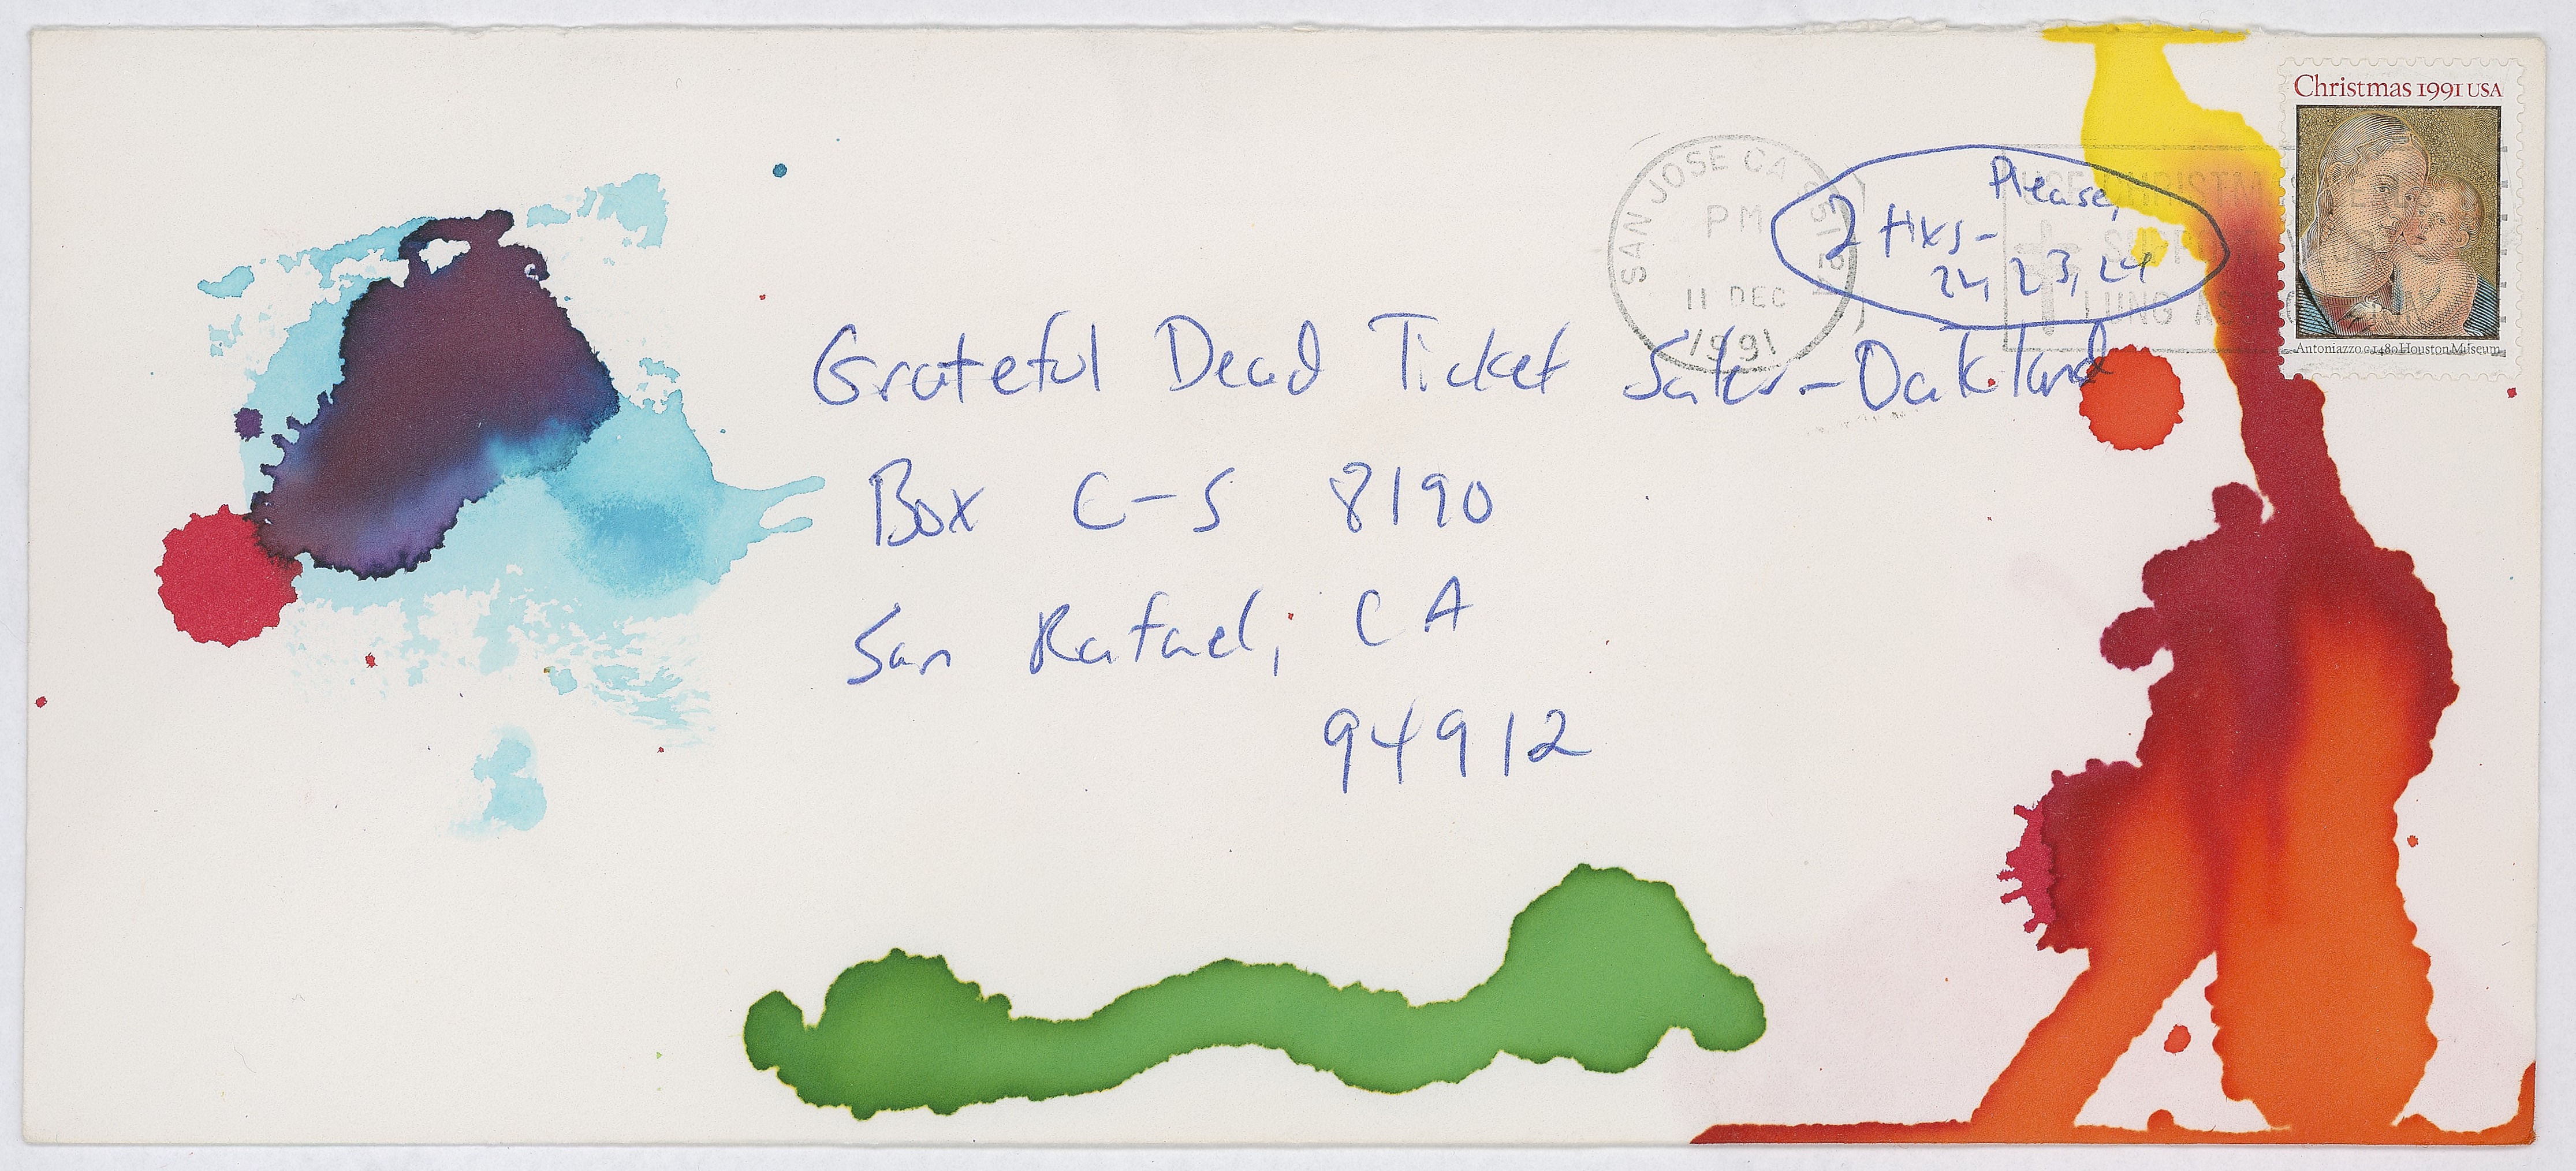 Christmas 1991 USA
Antoniazzo, c.1480 Houston Museum
SAN JOSE CA
PM
11 DEC
1991
USE CHRISTM
LUNG AS
Please,
2 tixs-
23, 24
Grateful Dead Ticket Sales-Oakland
Box C-S 8190
San Rafael, CA
94912